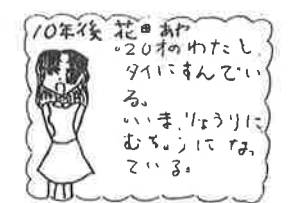 10年後 花田 あや
・20才のわたし
タイにすんでい
る。
・いま、りょうりに
むちゅうになっ
ている。